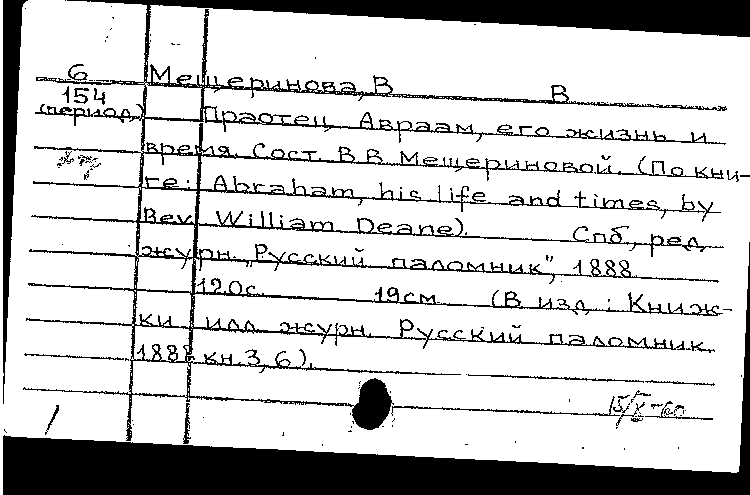 6 Мещеринова, В В
154
(период.) Праотец Авраам, его жизнь и
время. Сост. В В Мещериновой. (По кни-
ге: Abraham, his life and times, by
Rev. William Deane). Спб, ред.
журн. „Русский паломник", 1888
120с. 19см (В изд.: Книж-
ки илл журн. Русский паломник.
1888 кн. 3, 6).
15/X-60